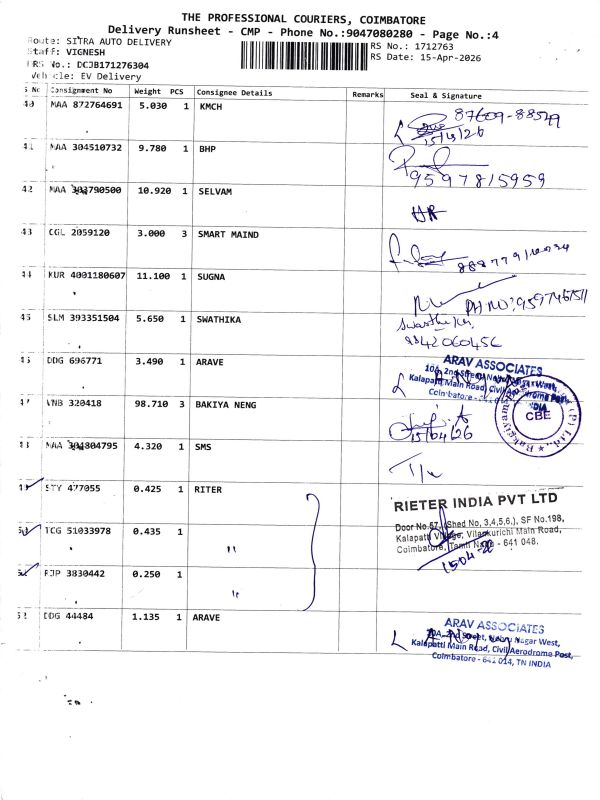 THE PROFESSIONAL COURIERS, COIMBATORE
Delivery Runsheet - CMP - Phone No.:9047080280 - Page No.:4
Route: SITRA AUTO DELIVERY
Staff: VIGNESH
RS No.: 1712763
RS Date: 15-Apr-2026
DRS No.: DCJB171276304
Vehicle: EV Delivery
S No Consignment No Weight PCS Consignee Details Remarks Seal & Signature
40 MAA 872764691 5.030 1 KMCH
87609-88549
15/4/26
41 MAA 304510732 9.780 1 BHP
9597815959
42 MAA 303790500 10.920 1 SELVAM
43 CGL 2059120 3.000 3 SMART MAIND
44 KUR 4001180607 11.100 1 SUGNA
PH NO:
45 SLM 393351504 5.650 1 SWATHIKA
9842060456
46 DDG 696771 3.490 1 ARAVE
ARAV ASSOCIATES
10A, 2nd Street, Nehru Nagar West,
Kalapatti Main Road, Civil Aerodrome Post,
Coimbatore - 641 014, TN INDIA
47 VNB 320418 98.710 3 BAKIYA NENG
15/04/26
CBE
(P) Ltd.
48 MAA 301804795 4.320 1 SMS
49 STY 477055 0.425 1 RITER
RIETER INDIA PVT LTD
Door No.67, (Shed No, 3,4,5,6,), SF No.198,
Kalapati Village, Vilankurichi Main Road,
Coimbatore, Tamil Nadu - 641 048.
50 TCG 51033978 0.435 1 "
51 PJP 3830442 0.250 1 "
52 DDG 44484 1.135 1 ARAVE
ARAV ASSOCIATES
10A, 2nd Street, Nehru Nagar West,
Kalapatti Main Road, Civil Aerodrome Post,
Coimbatore - 641 014, TN INDIA